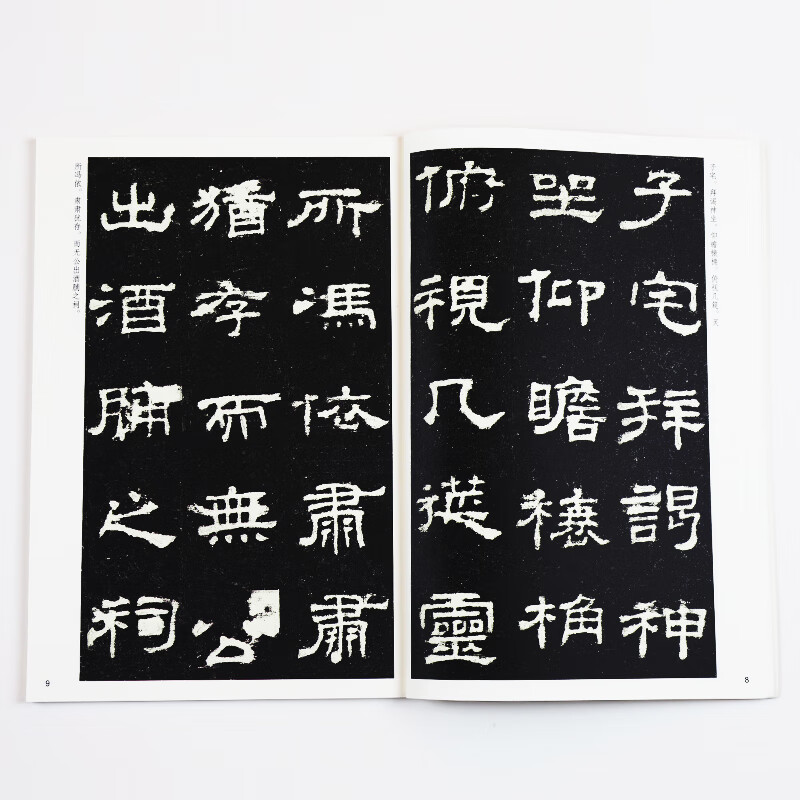 子宅，拜谒神坐，仰瞻榱桷，俯视几筵，灵
子宅拜謁神
坐仰瞻榱桷
俯視几筵靈
8
所馮依肅肅
猶存而無公
出酒脯之祠
所冯依，肃肃犹存，而无公出酒脯之祠。
9